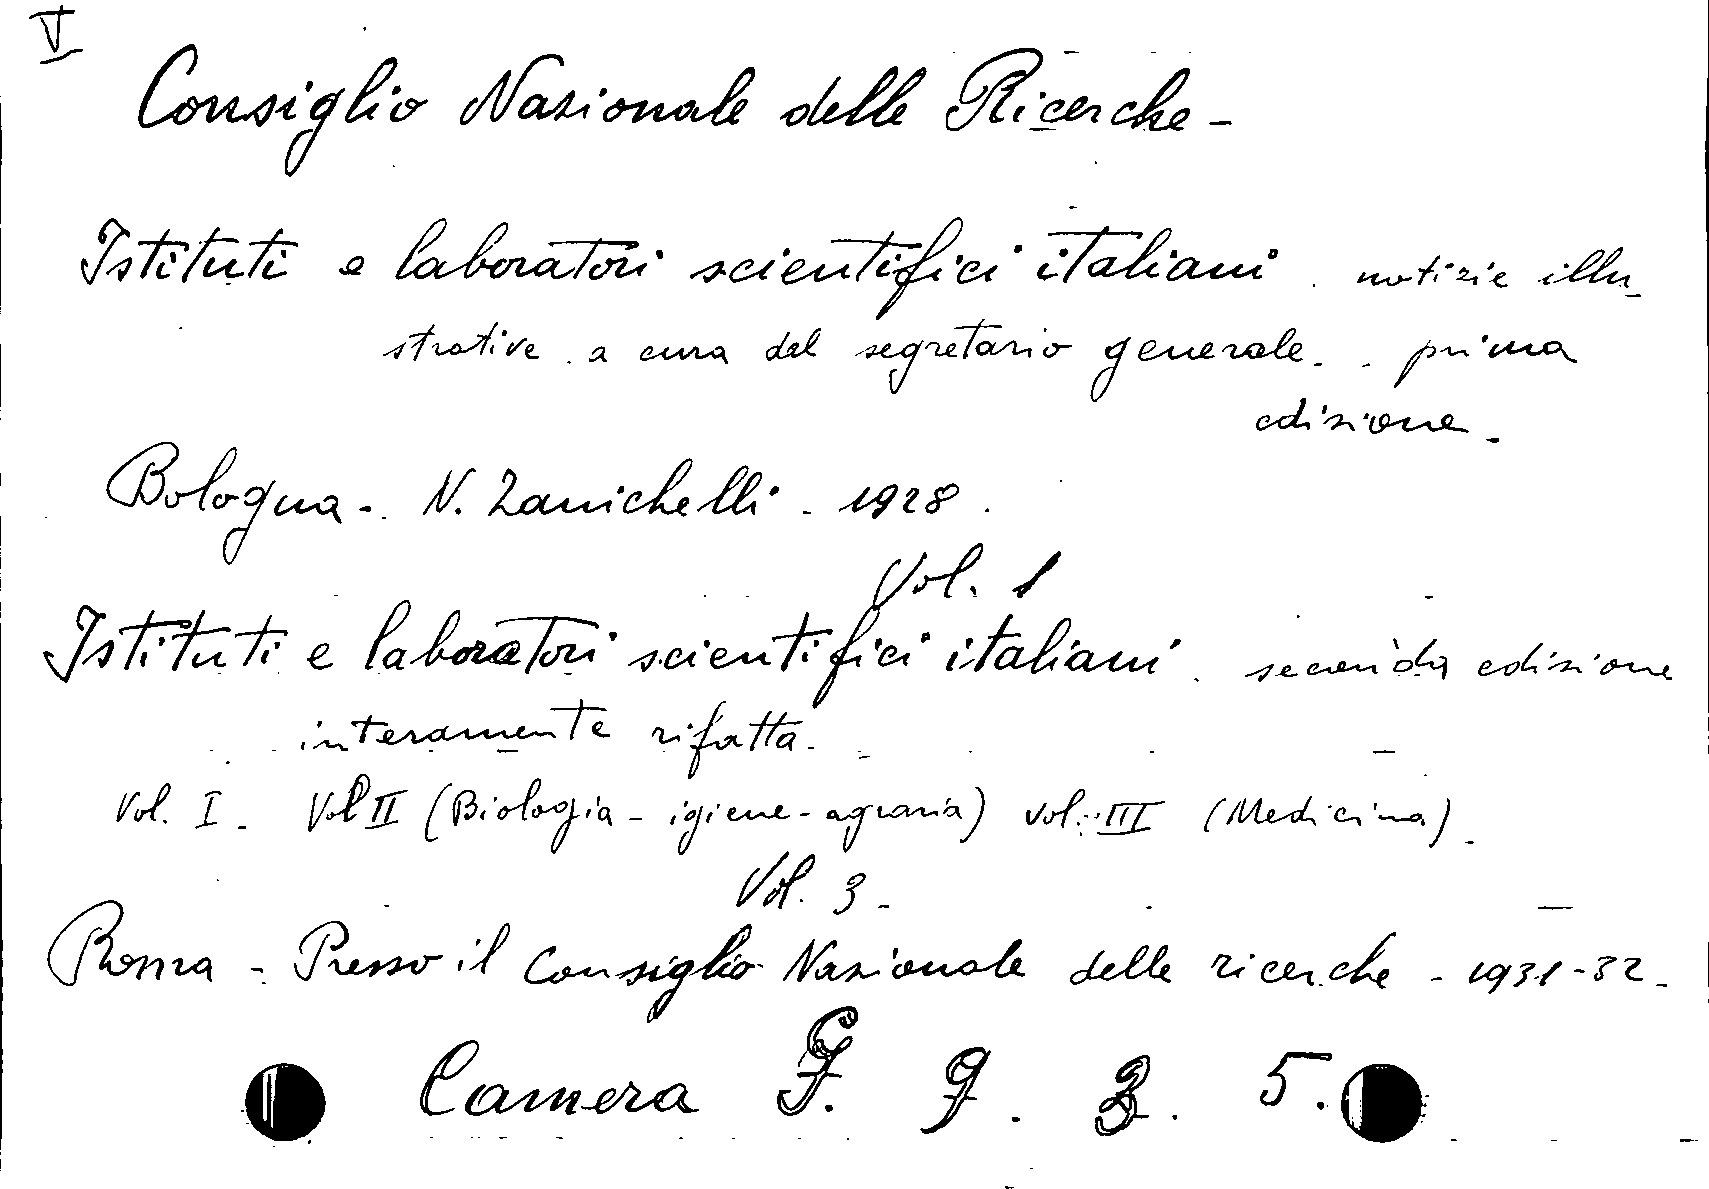 V
Consiglio Nazionale delle Ricerche -
Istituti e laboratori scientifici italiani . notizie illu-
strative . a cura del segretario generale. . prima
edizione.
Bologna - N. Zanichelli . 1928 .
Vol. 1
Istituti e laboratori scientifici italiani . seconda edizione
interamente rifatta.
Vol. I - Vol II (Biologia - igiene - agraria) vol. III (Medicina).
Vol. 3 -
Roma - Presso il Consiglio Nazionale delle ricerche - 1931-32.
Camera 9 . 3 . 5 .